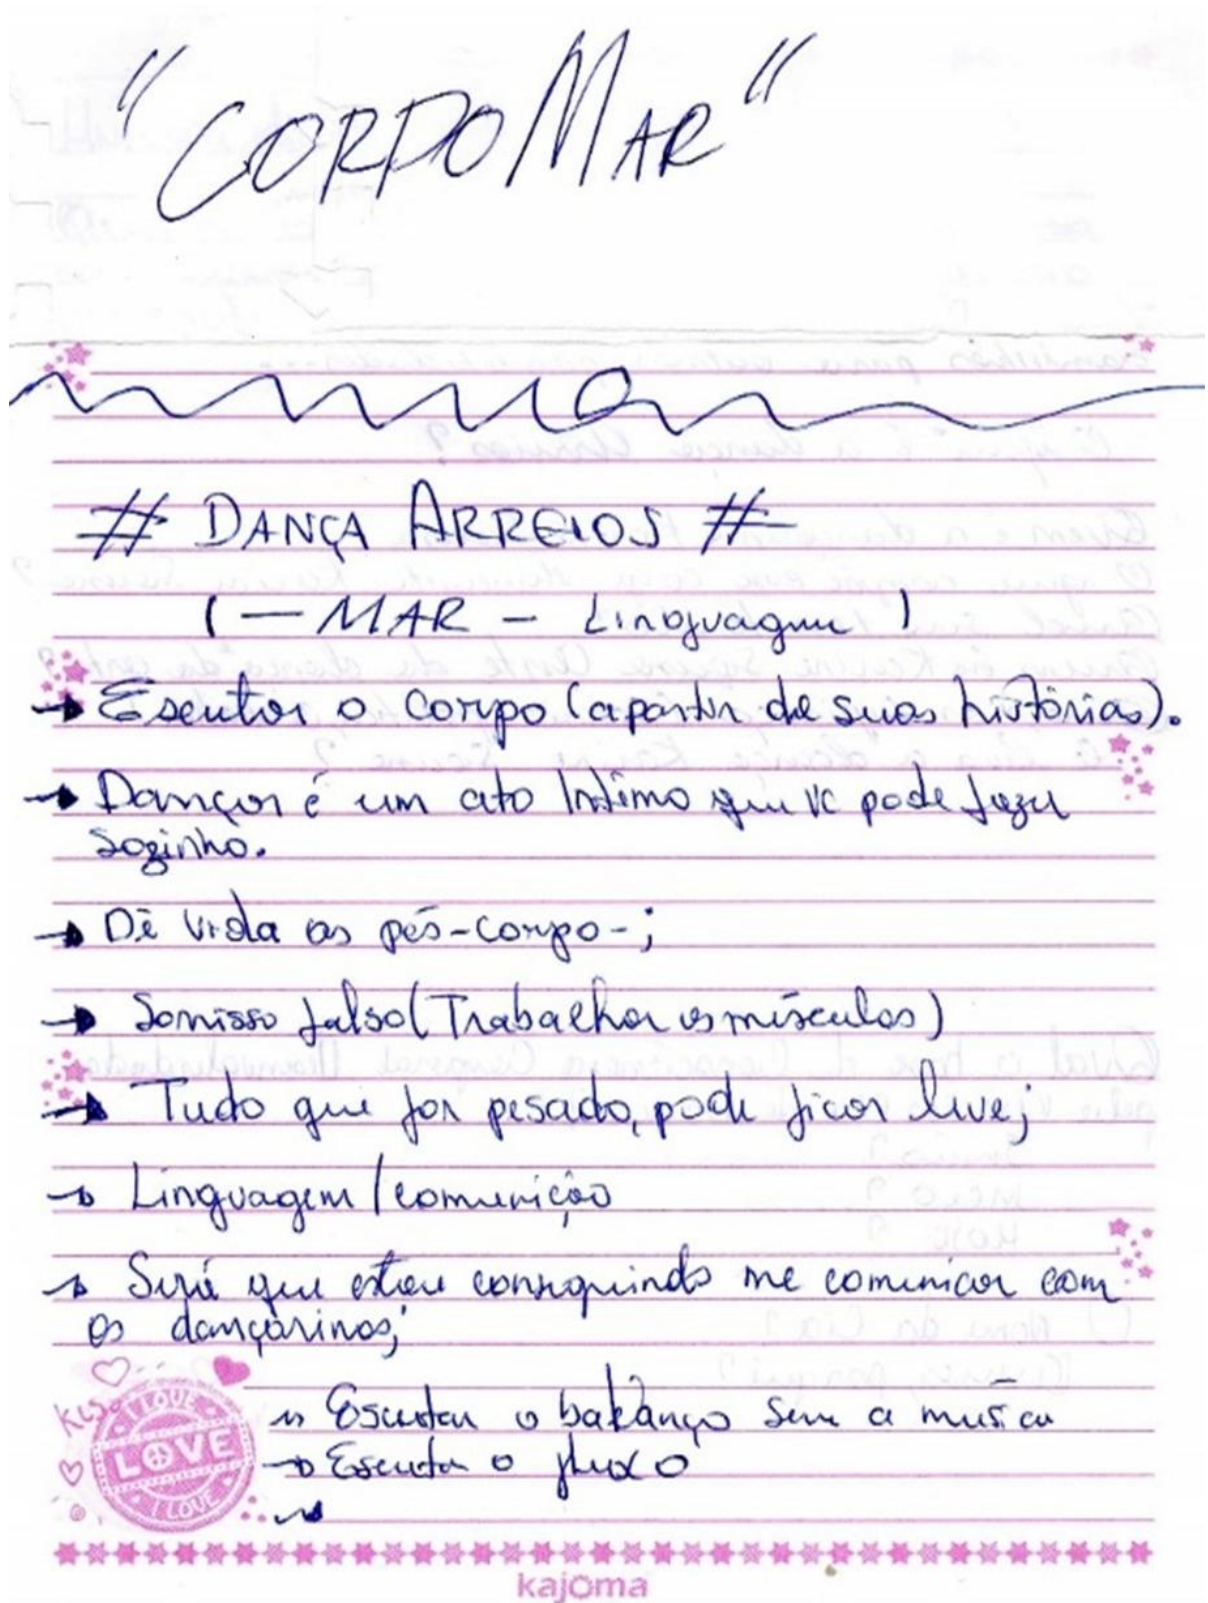 "CORPOMAR"
# DANÇA ARREIOS #
( — MAR — Linguagem )
→ Escutar o corpo (apartir de suas histórias).
→ Dançar é um ato Intimo que vc pode fazer
sozinho.
→ Dê vida os pés-corpo-;
→ Sorrisso falso (Trabalhar os músculos)
→ Tudo que for pesado, pode ficar leve;
→ Linguagem / comunição
→ Será que estou conseguindo me comunicar com
os dançarinos;
→ Escutar o balanço sem a música
→ Escutar o fluxo
→
I LOVE
LOVE
I LOVE
kajoma